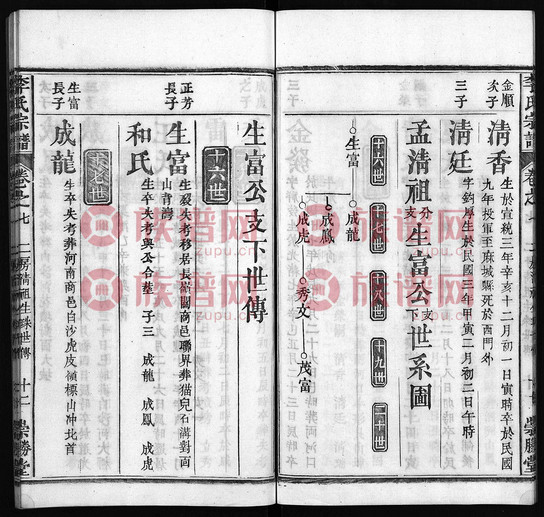 金順
次子
清香
生於宣統三年辛亥十二月初一日寅時卒於民國
九年投軍至麻城縣死於西門外
三子
清廷
字鈞厚生於民國三年甲寅二月初二日午時
孟清祖分支生富公支下世系圖
十六世 十七世 十八世 十九世 二十世
生富 成龍
成鳳
成虎 秀文 茂富
生富公支下世傳
十六世
正芳
長子
生富
生歿失考移居長峪關商邑聯界葬貓兒石溝對面
山青灣
和氏
生卒失考與公合葬 子三 成龍 成鳳 成虎
十七世
生富
長子
成龍
生卒失考葬河南商邑白沙虎皮嶺標山冲北首
李氏宗譜 卷之七
十二 崇勝堂
族谱网